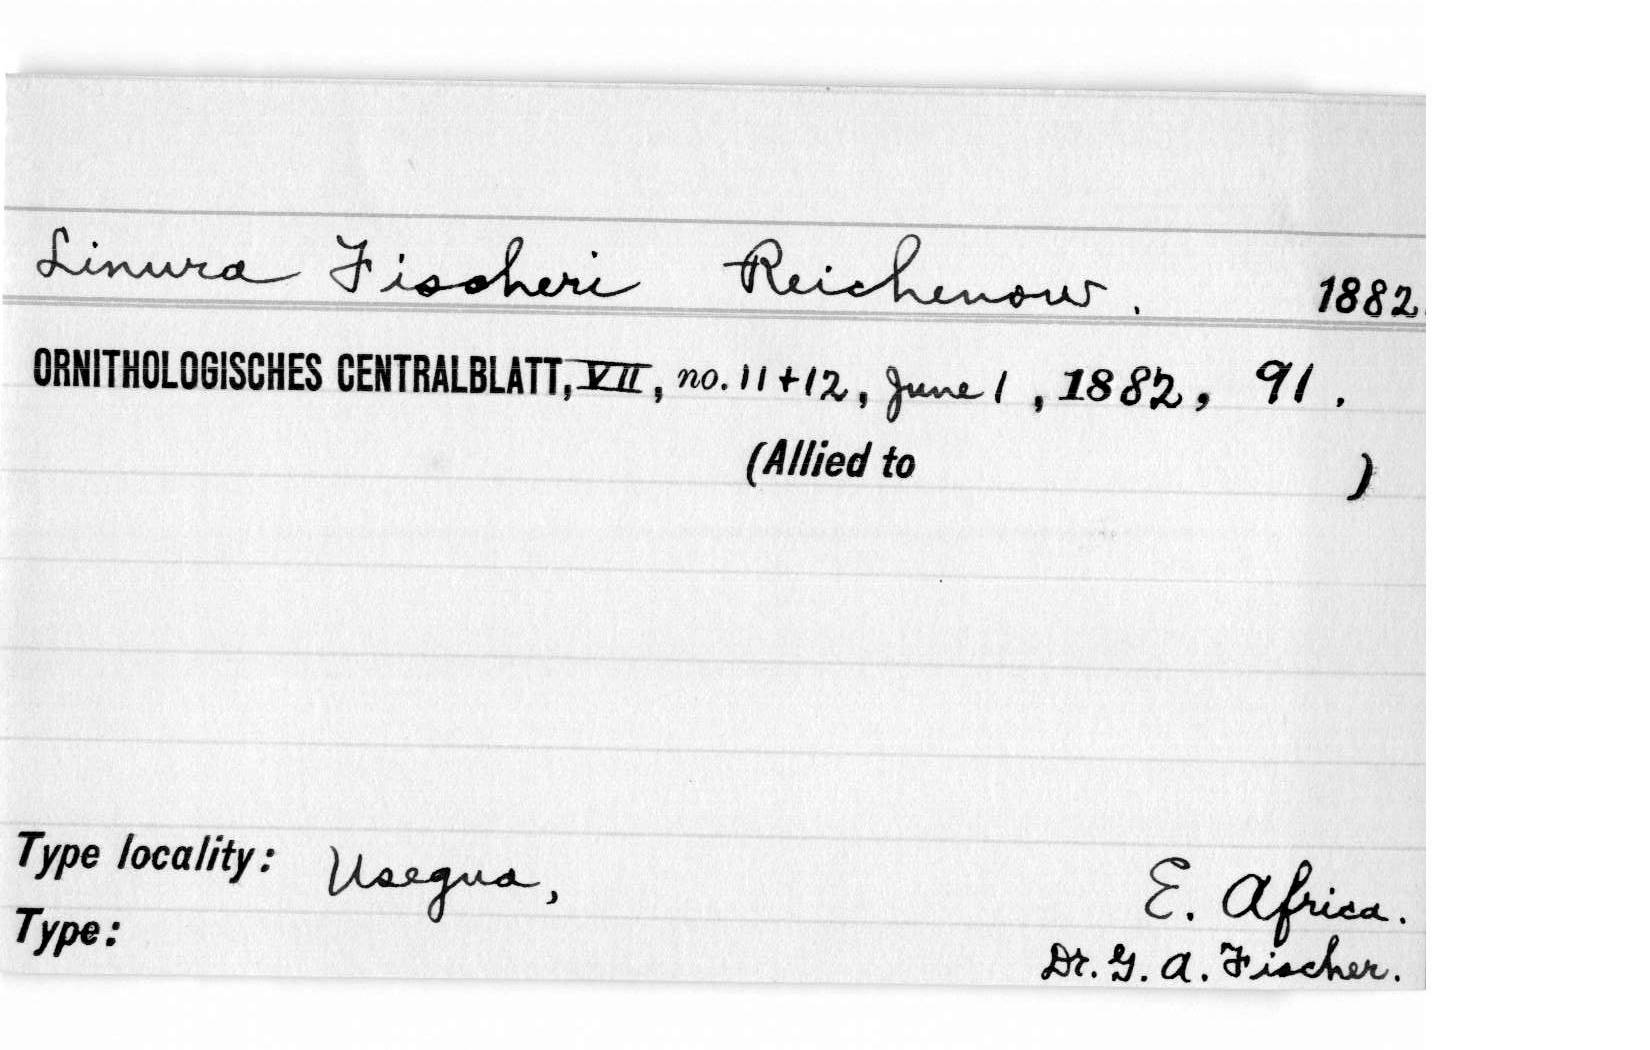 Linura Fischeri Reichenow. 1882.
ORNITHOLOGISCHES CENTRALBLATT, VII, no. 11+12, June 1, 1882, 91.
(Allied to )
Type locality: Usegua, E. Africa.
Type: Dr. G. A. Fischer.